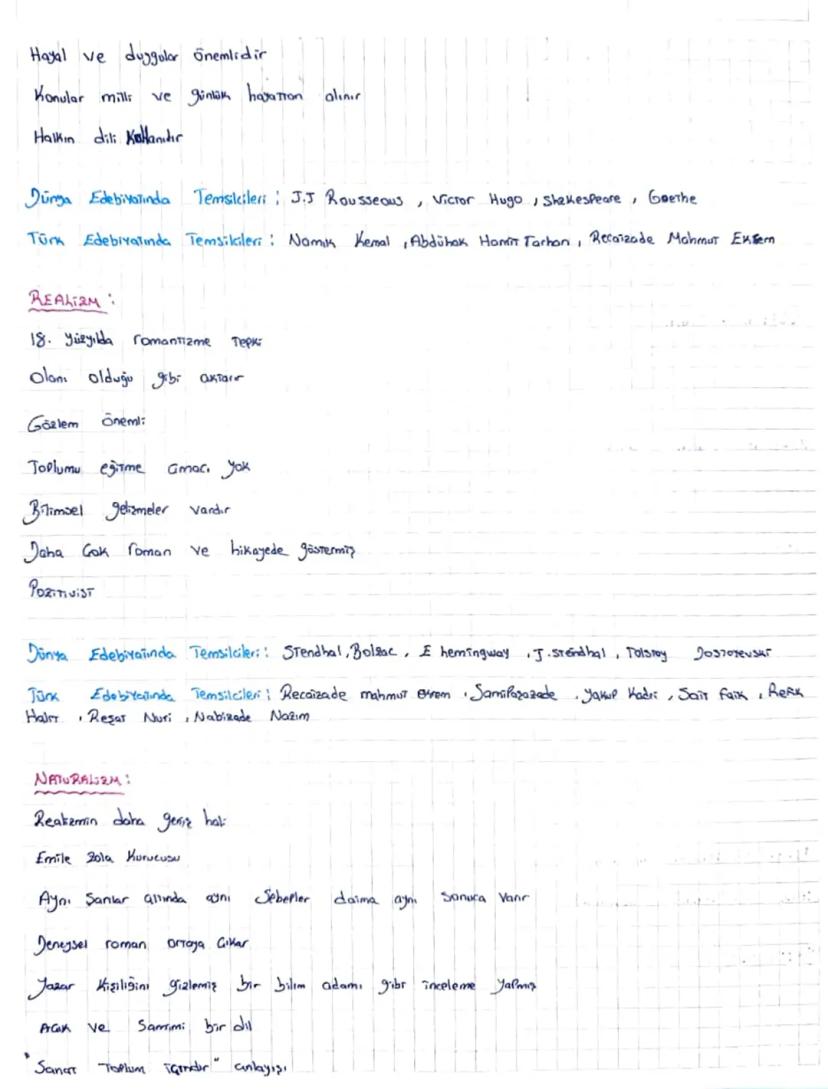 Hayal ve duygular önemlidir
Konular milli ve günlük hayattan alınır
Halkın dili kullanılır
Dünya Edebiyatında Temsilcileri : J.J Rousseous , Victor Hugo , Shakespeare , Goethe
Türk Edebiyatında Temsilcileri : Namık Kemal , Abdühak Hamit Tarhan , Recaizade Mahmut Ekrem
REALİZM :
18. yüzyılda romantizme tepki
Olanı olduğu gibi aktarır
Gözlem önemli
Toplumu eğitme amacı yok
Bilimsel gelişmeler vardır
Daha çok roman ve hikayede göstermiş
Pozitivist
Dünya Edebiyatında Temsilcileri : Stendhal , Balzac , E hemingway , J. stendhal , Tolstoy Dostoyevski
Türk Edebiyatında Temsilcileri : Recaizade mahmut ekrem , Samipaşazade , yakup Kadri , Sait faik , Refik
Halit , Reşat Nuri , Nabizade Nazım
NATURALİZM :
Realizmin daha geniş hali
Emile Zola Kurucusu
Aynı Şartlar altında aynı Sebepler daima aynı sonuca varır
Deneysel roman ortaya çıkar
Yazar kişiliğini gizlemiş bir bilim adamı gibi inceleme yapmış
Açık ve Samimi bir dil
"Sanat Toplum içindir" anlayışı